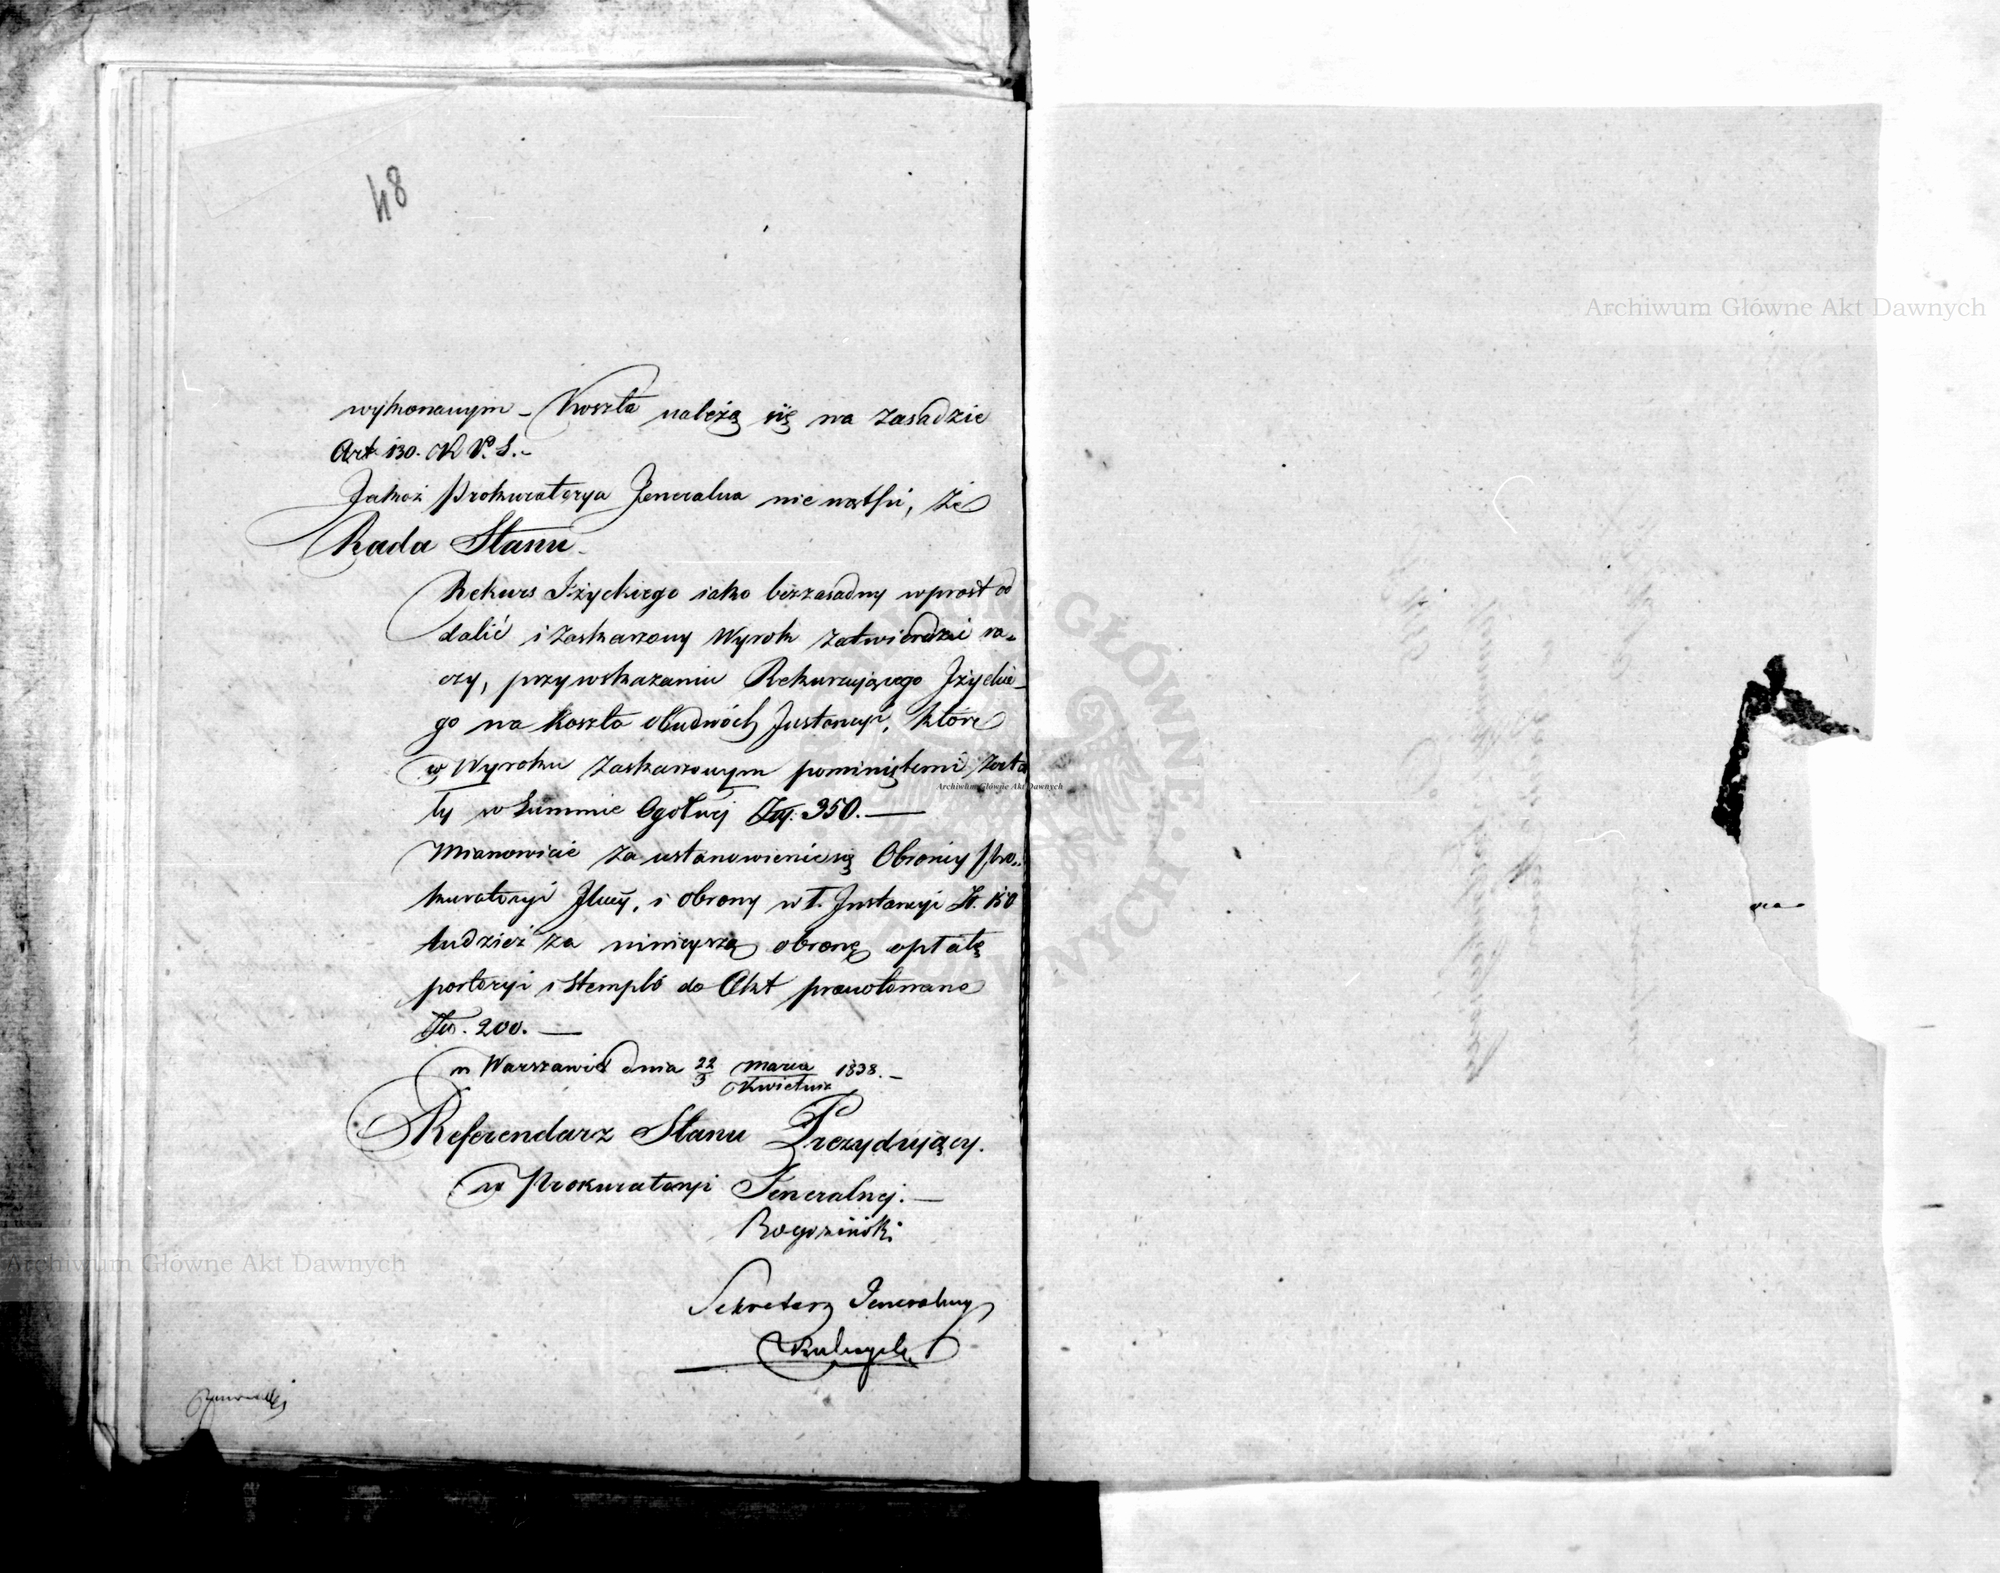 48
wykonanym – Koszta należą się na zasadzie
Art. 130. K P. S. –
Jakoż Prokuratorya Jeneralna nie wątpi, że
Rada Stanu
Rekurs Iżyckiego iako bezzasadny wprost od
dalić i zaskarżony Wyrok zatwierdzić ra-
czy, przy wskazaniu Rekurującego Iżyckie-
go na koszta obudwóch Instancyi, które
w Wyroku zaskarżonym pominiętemi zosta
ły w Summie Ogólnej Złp. 350. —
Mianowicie za ustanowienie się Obrońcy Pro-
kuratoryi Jlney, i obrony w I. Instancyi Zł. 150
tudzież za ninieyszą obronę opłatę
portoryi i stempló do Akt prenotowane
Zło. 200. —
w Warszawie dnia 22/3 Marca/Kwietnia 1838. –
Referendarz Stanu Prezydujący.
w Prokuratoryi Jeneralnej. —
Rogoziński
Sekretarz Jeneralny
Archiwum Główne Akt Dawnych
Archiwum Główne Akt Dawnych
Archiwum Główne Akt Dawnych